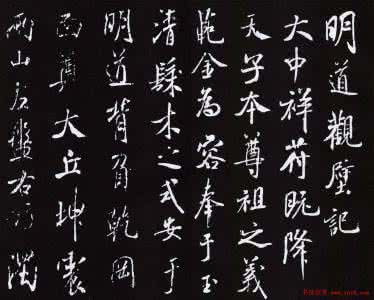 明道觀壁記
大中祥符既降
天子本尊祖之義
範金為容奉于玉
清木之式安于
明道背負乾岡
面尊大丘坤裹
兩山右